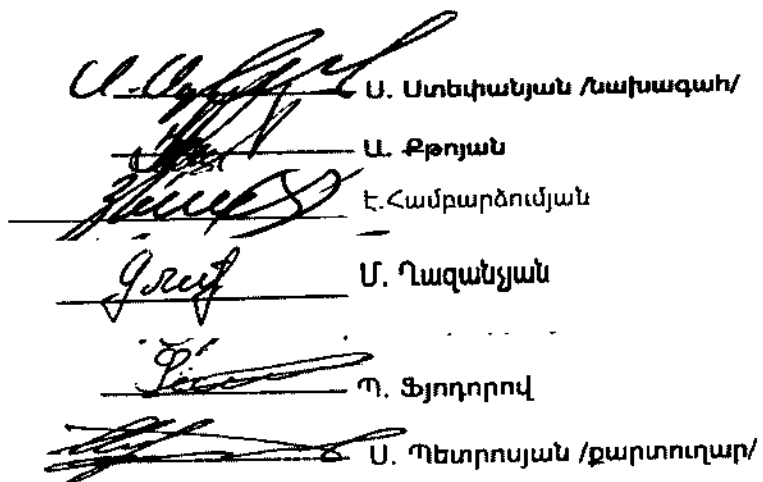 Ս. Ստեփանյան /նախագահ/
Ա. Քթոյան
Է.Համբարձումյան
Մ. Ղազանչյան
Պ. Ֆյոդորով
Ս. Պետրոսյան /քարտուղար/